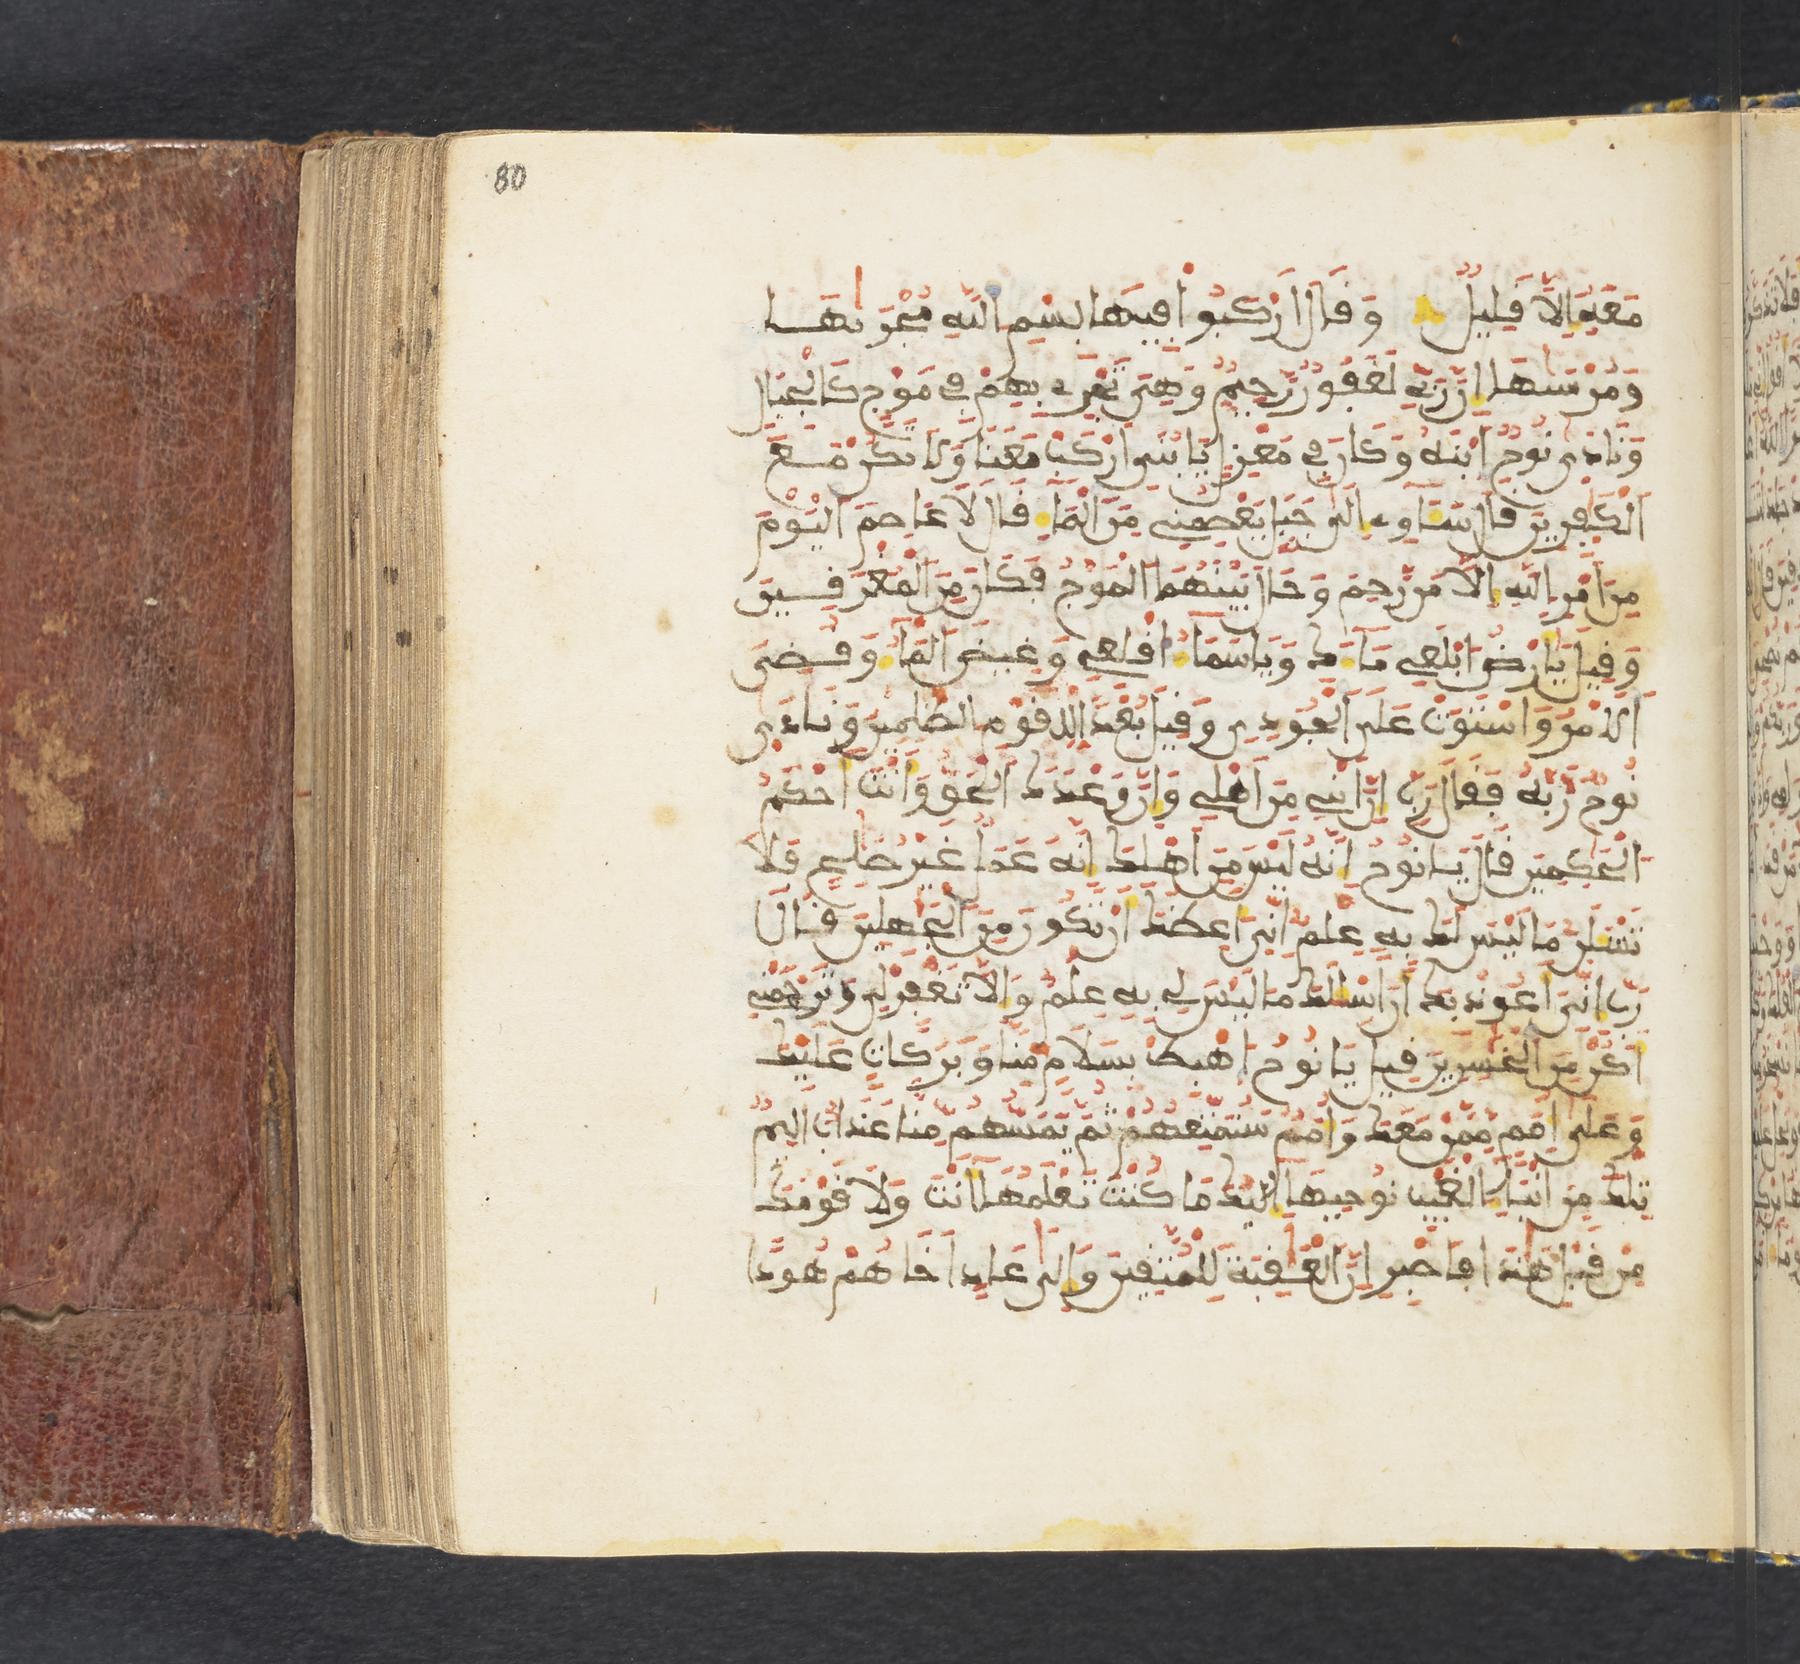 80
مَعَهُ إِلَّا قَلِيلٌ وَقَالَ ارْكَبُوا فِيهَا بِسْمِ اللَّهِ مُجْرَىٰهَا
وَمُرْسَىٰهَا إِنَّ رَبِّي لَغَفُورٌ رَّحِيمٌ وَهِيَ تَجْرِي بِهِمْ فِي مَوْجٍ كَالْجِبَالِ
وَنَادَىٰ نُوحٌ ابْنَهُ وَكَانَ فِي مَعْزِلٍ يَا بُنَيِّ ارْكَب مَّعَنَا وَلَا تَكُن مَّعَ
الْكَٰفِرِينَ قَالَ سَـَٔاوِي إِلَىٰ جَبَلٍ يَعْصِمُنِي مِنَ الْمَاءِ قَالَ لَا عَاصِمَ الْيَوْمَ
مِنْ أَمْرِ اللَّهِ إِلَّا مَن رَّحِمَ وَحَالَ بَيْنَهُمَا الْمَوْجُ فَكَانَ مِنَ الْمُغْرَقِينَ
وَقِيلَ يَا أَرْضُ ابْلَعِي مَاءَكِ وَيَا سَمَاءُ أَقْلِعِي وَغِيضَ الْمَاءُ وَقُضِيَ
الْأَمْرُ وَاسْتَوَتْ عَلَى الْجُودِيِّ وَقِيلَ بُعْدًا لِّلْقَوْمِ الظَّٰلِمِينَ وَنَادَىٰ
نُوحٌ رَّبَّهُ فَقَالَ رَبِّ إِنَّ ابْنِي مِنْ أَهْلِي وَإِنَّ وَعْدَكَ الْحَقُّ وَأَنْتَ أَحْكَمُ
الْحَٰكِمِينَ قَالَ يَا نُوحُ إِنَّهُ لَيْسَ مِنْ أَهْلِكَ إِنَّهُ عَمَلٌ غَيْرُ صَٰلِحٍ فَلَا
تَسْـَٔلَنِّ مَا لَيْسَ لَكَ بِهِ عِلْمٌ إِنِّيَ أَعِظُكَ أَن تَكُونَ مِنَ الْجَٰهِلِينَ قَالَ
رَبِّ إِنِّيَ أَعُوذُ بِكَ أَنْ أَسْـَٔلَكَ مَا لَيْسَ لِي بِهِ عِلْمٌ وَإِلَّا تَغْفِرْ لِي وَتَرْحَمْنِي
أَكُن مِّنَ الْخَٰسِرِينَ قِيلَ يَا نُوحُ اهْبِطْ بِسَلَامٍ مِّنَّا وَبَرَكَاتٍ عَلَيْكَ
وَعَلَىٰ أُمَمٍ مِّمَّن مَّعَكَ وَأُمَمٌ سَنُمَتِّعُهُمْ ثُمَّ يَمَسُّهُم مِّنَّا عَذَابٌ أَلِيمٌ
تِلْكَ مِنْ أَنبَاءِ الْغَيْبِ نُوحِيهَا إِلَيْكَ مَا كُنتَ تَعْلَمُهَا أَنتَ وَلَا قَوْمُكَ
مِن قَبْلِ هَٰذَا فَاصْبِرْ إِنَّ الْعَٰقِبَةَ لِلْمُتَّقِينَ وَإِلَىٰ عَادٍ أَخَاهُمْ هُودًا